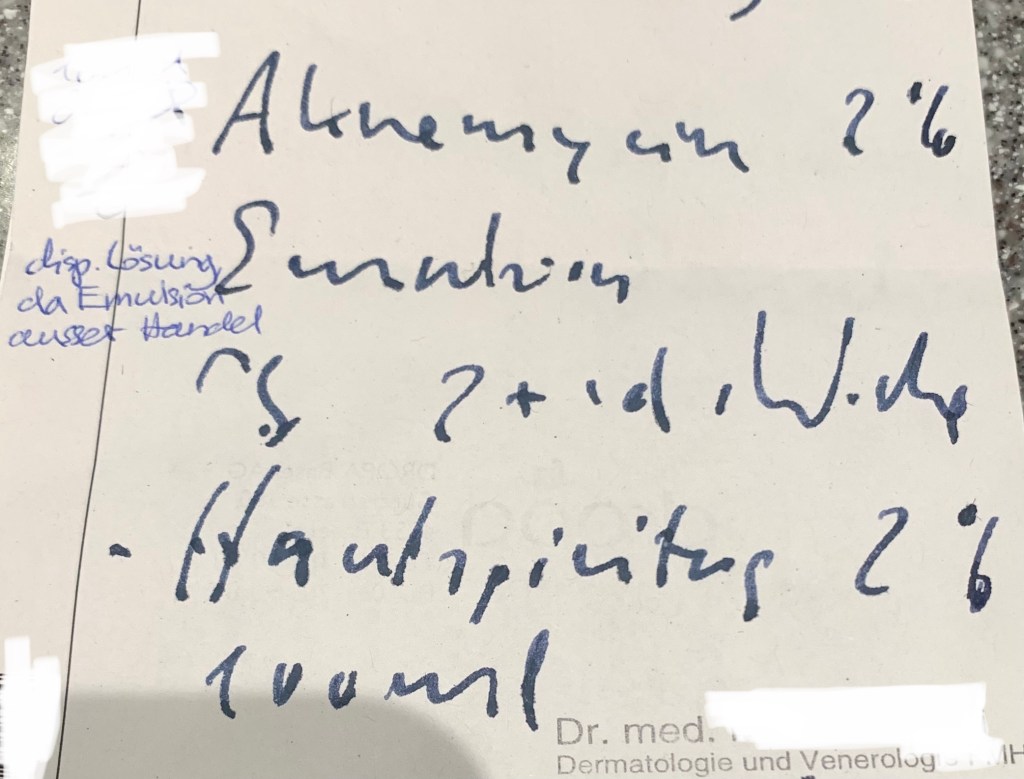 Aknemycin 2%
Emulsion
disp. Lösung,
da Emulsion
ausser Handel
S 2 × i d Woche
- Hautspiritus 2%
100ml
Dr. med.
Dermatologie und Venerologie FMH